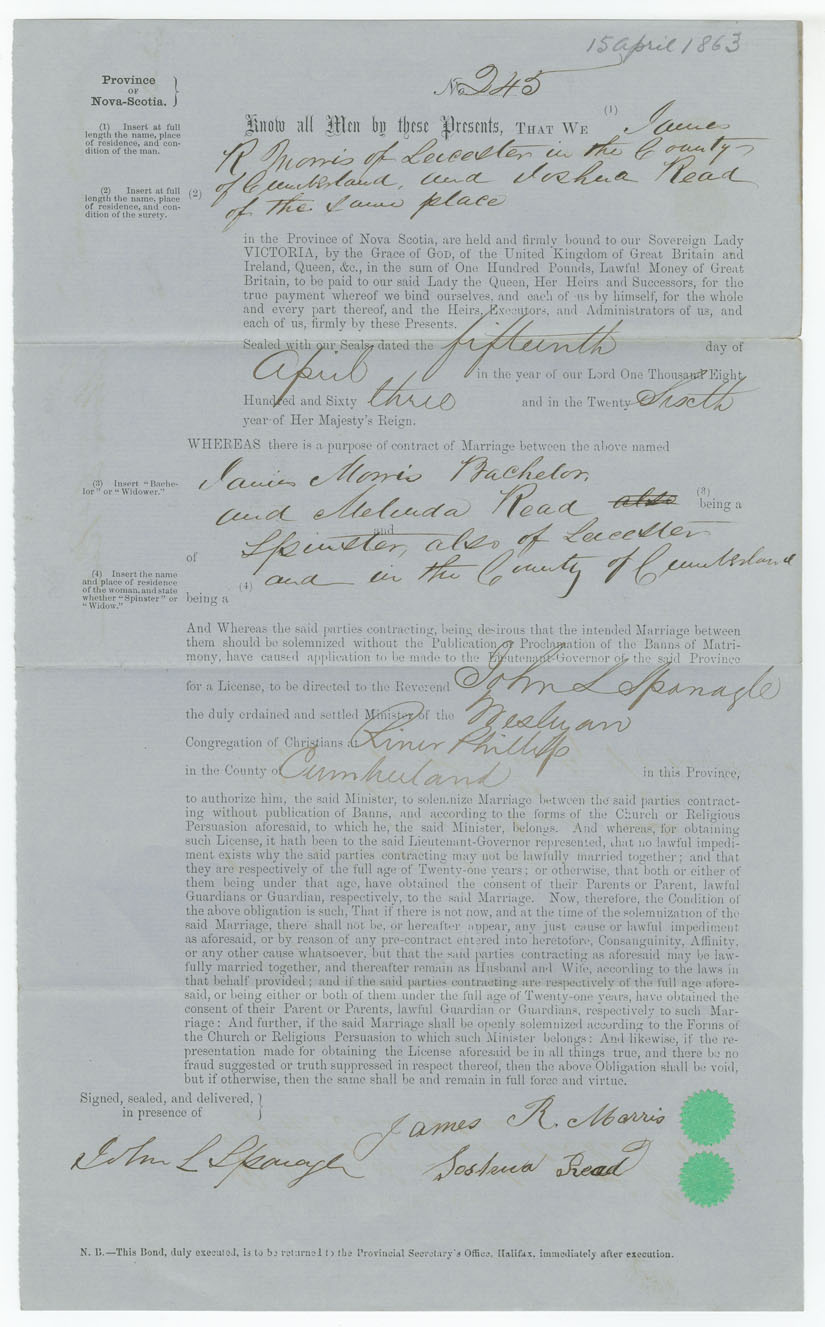 15 April 1863
Province
OF
Nova-Scotia.
No. 245
(1) Insert at full
length the name, place
of residence, and con-
dition of the man.
Know all Men by these Presents, THAT WE (1) James
R Morris of Leicester in the County
(2) Insert at full
length the name, place
of residence, and con-
dition of the surety.
(2) of Cumberland, and Joshua Read
of the same place
in the Province of Nova Scotia, are held and firmly bound to our Sovereign Lady
VICTORIA, by the Grace of GOD, of the United Kingdom of Great Britain and
Ireland, Queen, &c., in the sum of One Hundred Pounds, Lawful Money of Great
Britain, to be paid to our said Lady the Queen, Her Heirs and Successors, for the
true payment whereof we bind ourselves, and each of us by himself, for the whole
and every part thereof, and the Heirs, Executors, and Administrators of us, and
each of us, firmly by these Presents.
Sealed with our Seals, dated the fifteenth day of
April in the year of our Lord One Thousand Eight
Hundred and Sixty three and in the Twenty Sixth
year of Her Majesty's Reign.
WHEREAS there is a purpose of contract of Marriage between the above named
James Morris Bachelor
(3) Insert "Bache-
lor" or "Widower."
and Melinda Read also (3) being a
and
Spinster, also of Leicester
of and in the County of Cumberland
(4) Insert the name
and place of residence
of the woman, and state
whether "Spinster" or
"Widow."
(4)
being a
And Whereas the said parties contracting, being desirous that the intended Marriage between
them should be solemnized without the Publication or Proclamation of the Banns of Matri-
mony, have caused application to be made to the Lieutenant-Governor of the said Province
for a License, to be directed to the Reverend John L Sponagle
the duly ordained and settled Minister of the Wesleyan
Congregation of Christians at River Phillip
in the County of Cumberland in this Province,
to authorize him, the said Minister, to solemnize Marriage between the said parties contract-
ing without publication of Banns, and according to the forms of the Church or Religious
Persuasion aforesaid, to which he, the said Minister, belongs. And whereas, for obtaining
such License, it hath been to the said Lieutenant-Governor represented, that no lawful impedi-
ment exists why the said parties contracting may not be lawfully married together; and that
they are respectively of the full age of Twenty-one years; or otherwise, that both or either of
them being under that age, have obtained the consent of their Parents or Parent, lawful
Guardians or Guardian, respectively, to the said Marriage. Now, therefore, the Condition of
the above obligation is such, That if there is not now, and at the time of the solemnization of the
said Marriage, there shall not be, or hereafter appear, any just cause or lawful impediment
as aforesaid, or by reason of any pre-contract entered into heretofore, Consanguinity, Affinity,
or any other cause whatsoever, but that the said parties contracting as aforesaid may be law-
fully married together, and thereafter remain as Husband and Wife, according to the laws in
that behalf provided; and if the said parties contracting are respectively of the full age afore-
said, or being either or both of them under the full age of Twenty-one years, have obtained the
consent of their Parent or Parents, lawful Guardian or Guardians, respectively to such Mar-
riage: And further, if the said Marriage shall be openly solemnized according to the Forms of
the Church or Religious Persuasion to which such Minister belongs: And likewise, if the re-
presentation made for obtaining the License aforesaid be in all things true, and there be no
fraud suggested or truth suppressed in respect thereof, then the above Obligation shall be void,
but if otherwise, then the same shall be and remain in full force and virtue.
Signed, sealed, and delivered,
in presence of
James R. Morris
John L Sponagle
Joshua Read
N. B.—This Bond, duly executed, is to be returned to the Provincial Secretary's Office, Halifax, immediately after execution.